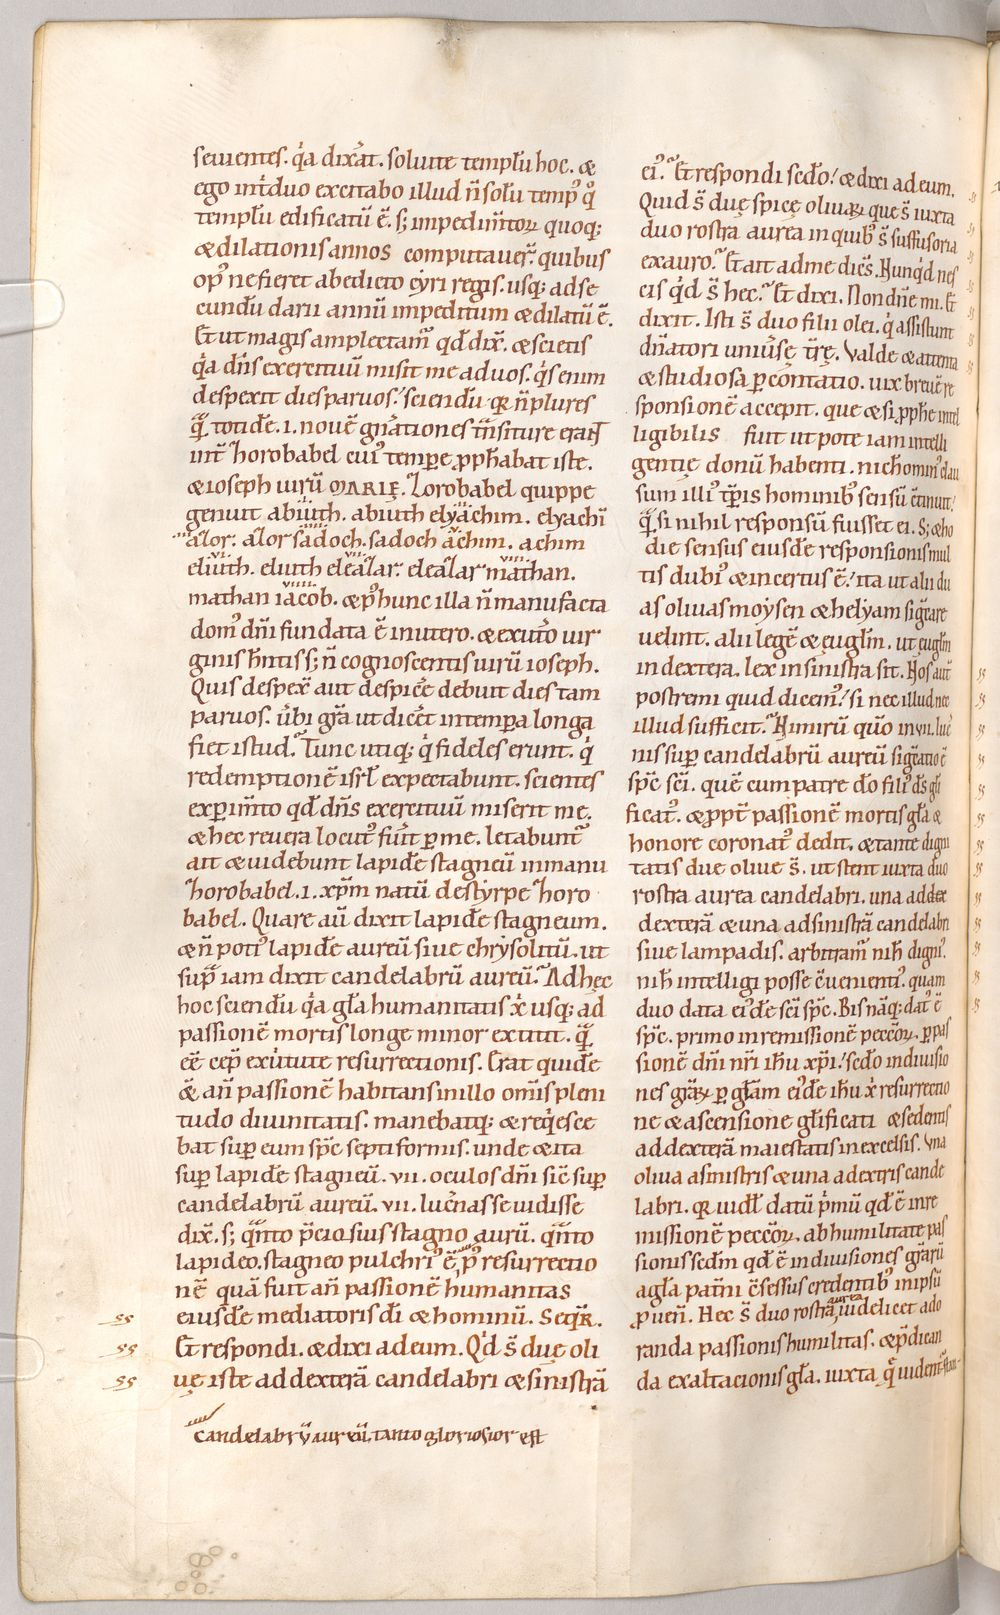 seiuentes. q̓a dixĀt. soluite templū hoc. &
ego int̄duo excitabo illud n̄ solū temp᷒ q̊
templū edificatū ē. s; impedim̄torꝝ quoq;
& dilationis annos computauer̄. quibus
op᷒ ne fieret ab edicto cyri regis. usq; ad se
cundū darii annū impeditum & dilatū ē.
Et ut magis amplectam̄ qd̄ dix̄. & scietis
q̓a dn̄s exercituū misit me ad uos. q̓s enim
despexit dies paruos.ʼ sciendū qꝛ n̄ plures
q̄ totidē .i. nouē gn̄ationes tn̄siture erant
int̄ Zorobabel cui᷒ tempore ꝓphabat iste.
& ioseph uirū MARIĘ. Zorobabel quippe
genuit abiuth. abiuth elyachim. elyachī
azor. azor sadoch. sadoch achim. achim
eliuth. eliuth eleazar. eleazar mathan.
mathan iacob. & p᷒ hunc illa n̄ manufacta
dom᷒ dn̄i fundata ē in utero. & ex utero uir
ginis h̄ntis s; n̄ cognoscentis uirū ioseph.
Quis despex̄ aut despicē debuit dies tam
paruos. ubi gr̄a ut dicēt in tempora longa
fiet istud. Tunc utiq; q̓ fideles erunt. q̓
redemptionē isrl̄ expectabunt. scientes
experim̄to qd̄ dn̄s exercituū miserit me.
& hec reuera locut᷒ fuit ꝑ me. letabunt̄
ait & uidebunt lapidē stagneū in manu
Zorobabel .i. xp̄m natū de styrpe Zoro
babel. Quare aū dixit lapidē stagneum.
& n̄ poti᷒ lapidē aureū siue chrysolitū. ut
sup̄ iam dixit candelabrū aureū. Ad hęc
hoc sciendū q̓a gl̄a humanitatis x̄ usq; ad
passionē mortis longe minor extitit. q̄
eē cep̄ ex uirtute resurrectionis. Erat quidē
& an̄ passionē habitans in illo om̄is pleni
tudo diuinitatis. manebatq; & req̓esce
bat sup eum sp̄c septiformis. unde & ita
sup lapidē stagneū .vii. oculos dn̄i sic̄ sup
candelabrū aureū .vii. lucernas se uidisse
dix̄. s; q̄nto p̄ciosius stagno aurū. q̄nto
lapideo. stagneo pulchri᷒ ē p᷒ resurrectio
nē quā fuit an̄ passionē humanitas
eiusdē mediatoris dī & hominū. Seqr̄.
Et respondi. & dixi ad eum. Qd̓ s̄ duę oli
uę iste ad dexterā candelabri & sinistrā
candelabrū aureū. tanto gloriosior est
ei᷒. Et respondi scdo.ʼ & dixi ad eum.
Quid s̄ duę spicę oliuarꝝ que s̄ iuxta
duo rostra aurea in quib᷒ s̄ suffusoria
ex auro. Et ait ad me dicēs. Nunq̓d nes
cis q̓d s̄ hec. Et dixi. Non dn̄e mi. Et
dixit. Isti s̄ duo filii olei. q̓ assistunt
dn̄atori uniuersę tr̄ę. Valde & attenta
& studiosa ꝑcontatio. uix breuē re
sponsionē accepit. que & si ꝓph̄e intel
ligibilis fuit utpote iam intelli
gentię donū habenti. nich hominᷣ clau
sum illi᷒ tꝑis hominib᷒ sensū ꝯtinuit.ʼ
q̄ si nihil responsū fuisset ei. S; & ho
die sensus eiusdē responsionis mul
tis dubi᷒ & incertus ē.ʼ ita ut alii du
as oliuas moysen & helyam sigc̄are
uelint. alii legē & ęuglm̄. ut ęuglm̄
in dextera. lex in sinistra sit. Nos aut̄
postremi quid dicem᷒.ʼ si nec illud nec
illud sufficit. Nimirū quō in .vii. lucer
nis sup candelabrū aureū sigc̄atio ē
sp̄c sc̄i. quē cum patre dō fili᷒ dī gl̄i
ficat᷒. & ꝓpt̄ passionē mortis gl̄a &
honore coronat᷒ dedit. & tante digni
tatis due oliue s̄. ut stent iuxta duo
rostra aurea candelabri. una ad dex
dexterā & una ad sinistrā candelabri
siue lampadis. arbitram̄ nih̄ digni᷒.
nih̄ intelligi posse ꝯuenienti᷒. quam
duo data ei᷒dē sc̄i sp̄c. Bis nāq; dat᷒ ē
sp̄c. primo in remissionē peccōꝝ. ꝑ pas
sionē dn̄i nr̄i ih̄u xp̄i.ʼ scdo in diuisio
nes gr̄arꝝ ꝑ glām ei᷒dē ih̄u x̄ resurrectio
ne & ascensione gl̄ificati & sedentis
ad dexterā maiestatis in excelsis. Vna
oliua a sinistris & una a dextris cande
labri. qꝛ uidl̄ datū p̓mū qd̄ ē in re
missionē peccōꝝ. ab humilitate pas
sionis scdm̄ qd̄ ē in diuisiones gr̄arū
a gl̄a patn̄i ꝯsessus credentib᷒ in ipsū
ꝓuen̄. Hec s̄ duo rostra aurea, uidelicet ado
randa passionis humilitas. & p̄dican
da exaltacionis gl̄a. iuxta q̄ uident̄ stan-